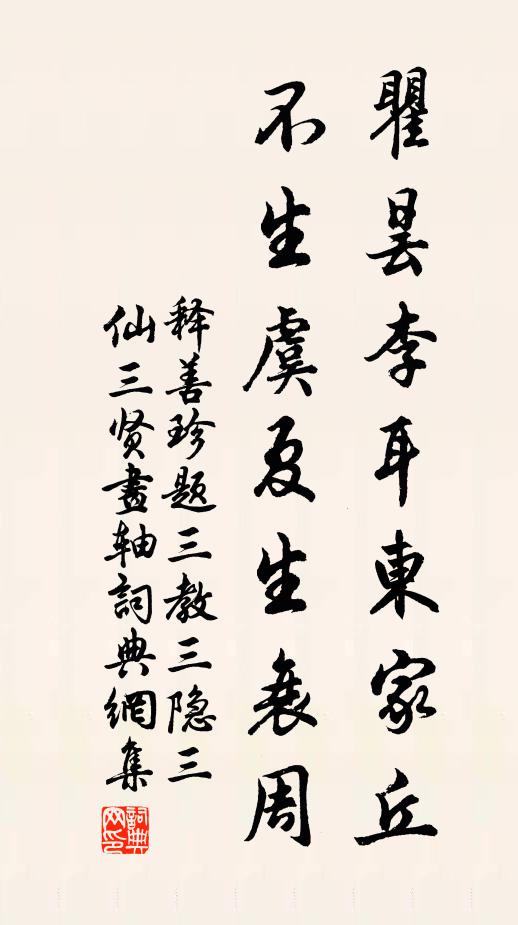 瞿昙李耳東家丘
不生虞夏生衰周
释善珍题三教三隐三
仙三贤畫轴詞典網集
詞典网印